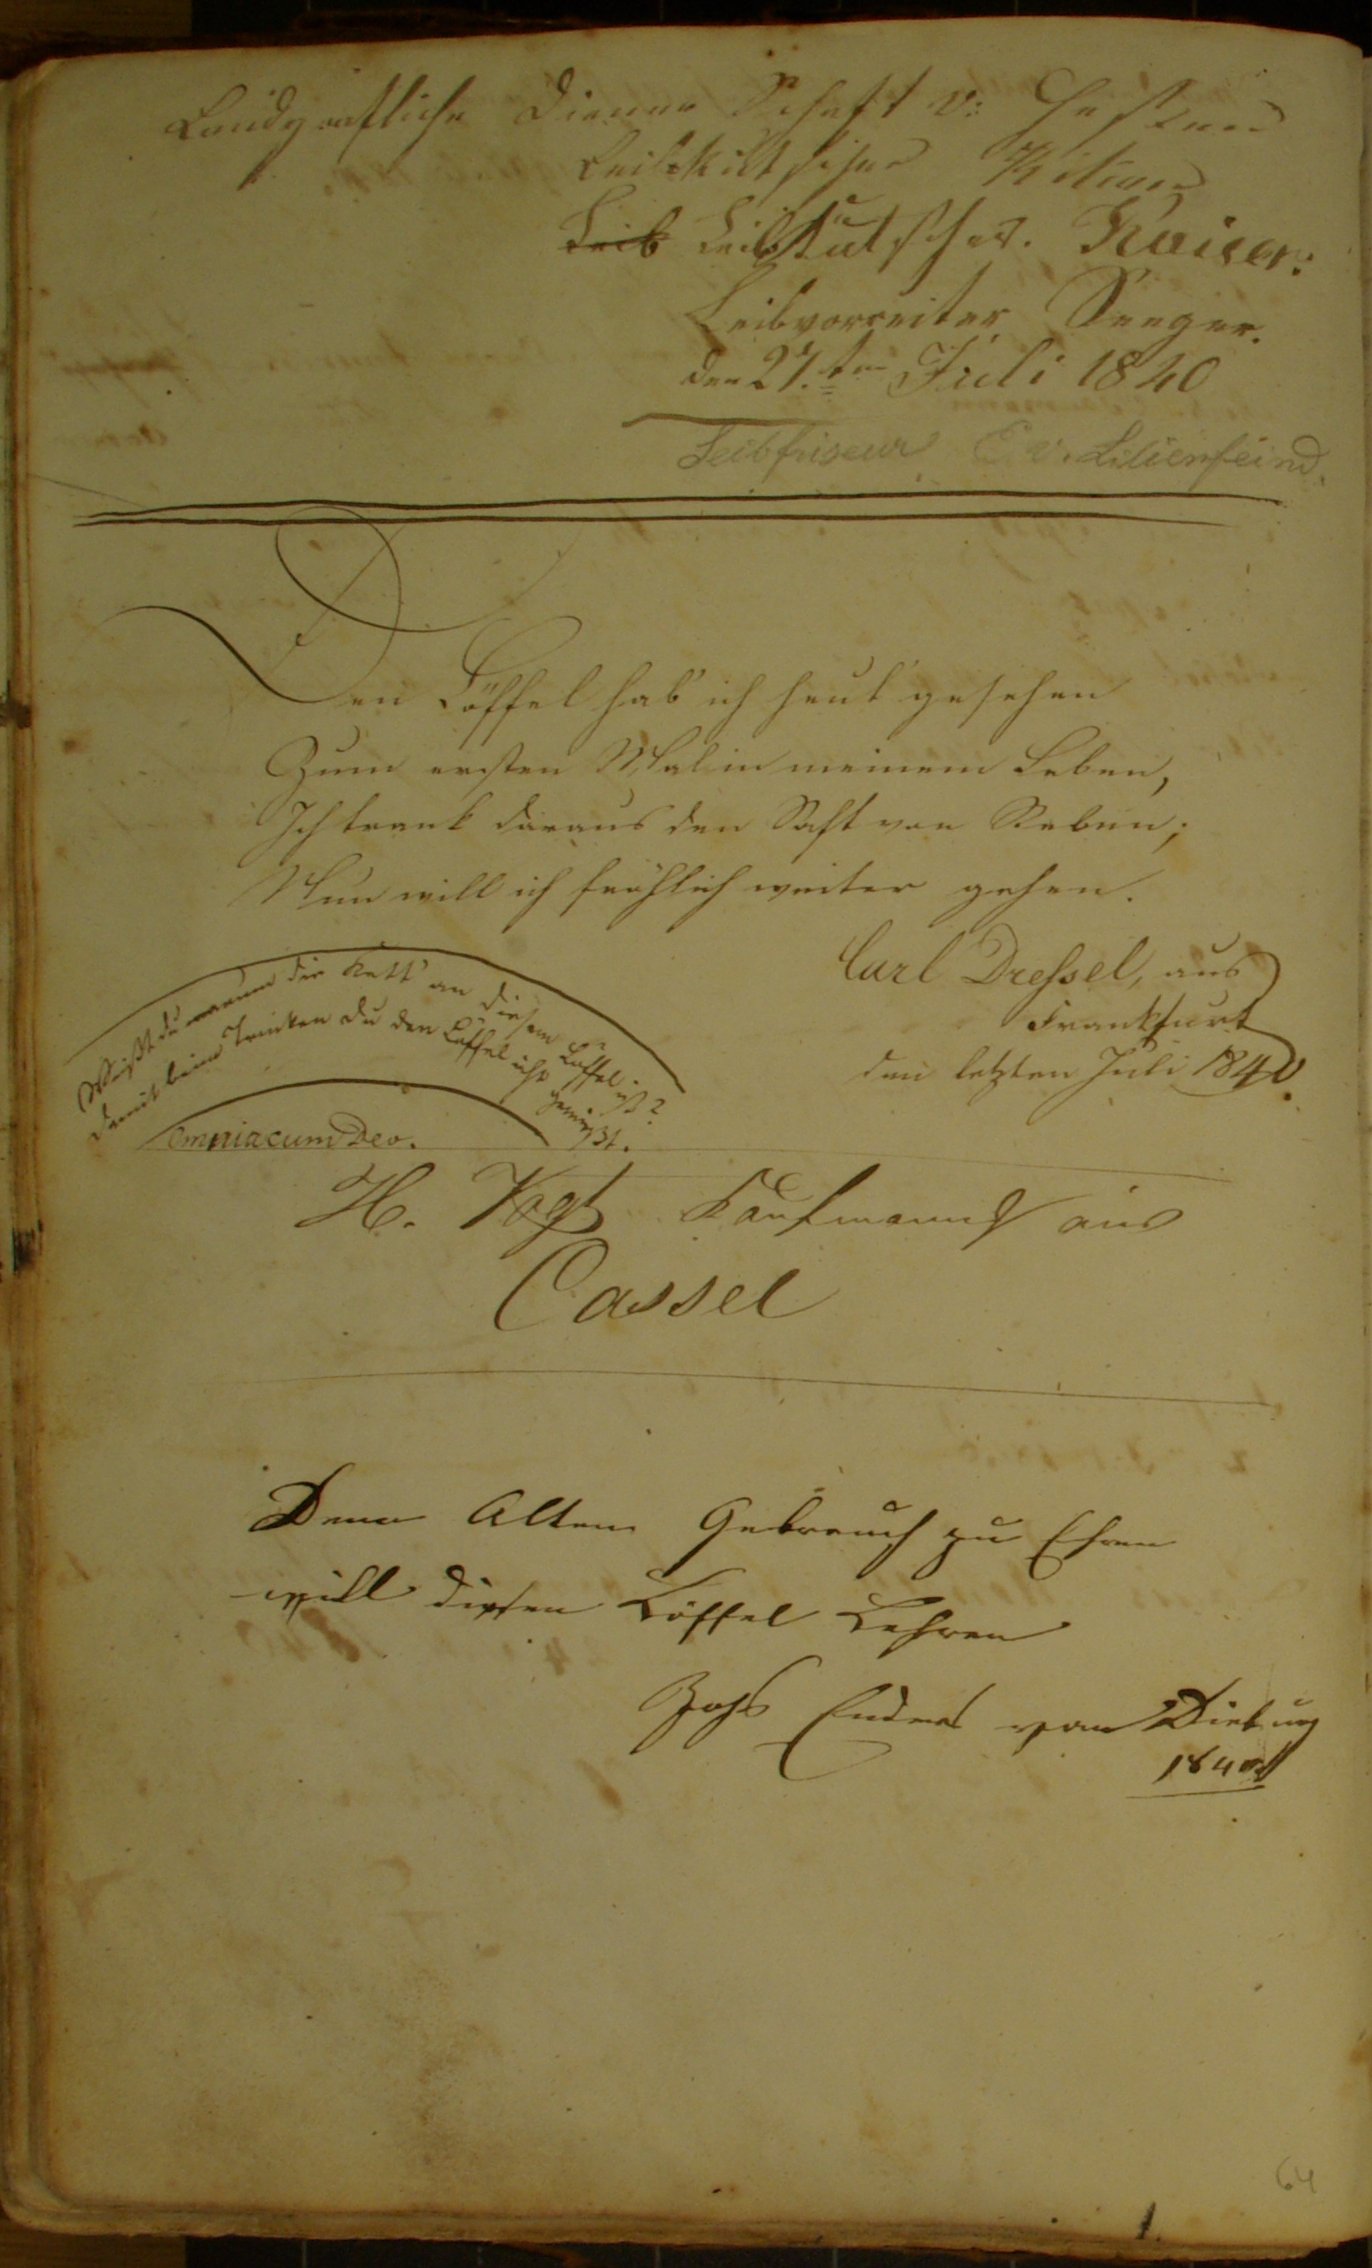 Landgräfliche Dienerschaft v: Hessen
Leibkutscher
Leib Leibkutscher. Kaiser.
Leibvorreiter Seeger.
den 27.ten Juli 1840
Leibfriseur E. v. Lilienfeind.
Den Löffel hab' ich heut' gesehen
Zum ersten Mal in meinem Leben,
Ich trank daraus den Saft von Reben;
Nun will ich fröhlich weiter gehen.
Carl Dressel, aus
Frankfurt
den letzten Juli 1840.
Weißt du warum die Kett' an diesem Löffel ist?
Damit beim Trinken du den Löffel nicht
Omnia cum Deo.
H. Vogt Kaufmann aus
Cassel
Dem Alten Gebrauch zu Ehren
will diesen Löffel Lehren
Johs Enders von Dieburg
1840
64